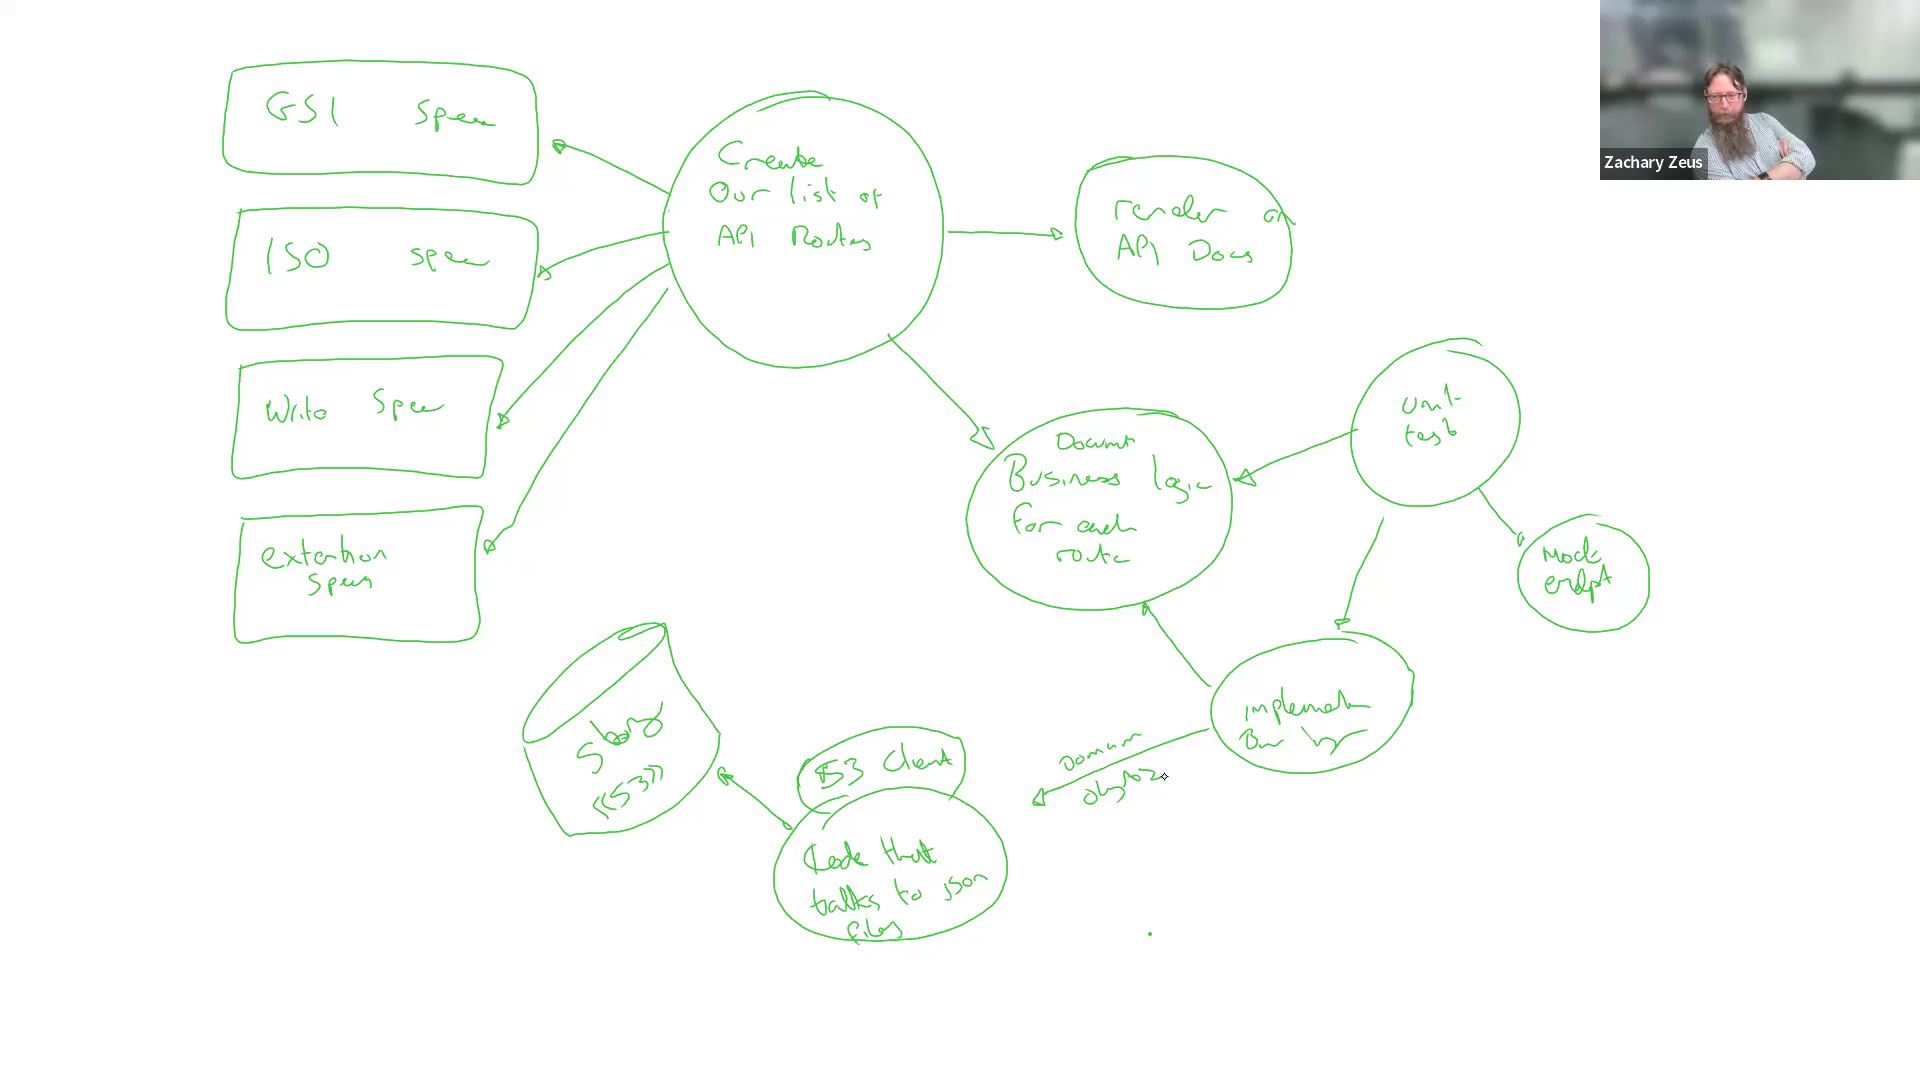 GS1 Spec
ISO spec
Write Spec
extention
Specs
Create
Our list of
API Routes
render an
API Docs
Document
Business logic
for each
route
Unit
test
Mock
endpt
implement
Domain
S3 Client
Code that
talks to json
files
«S3»
Zachary Zeus